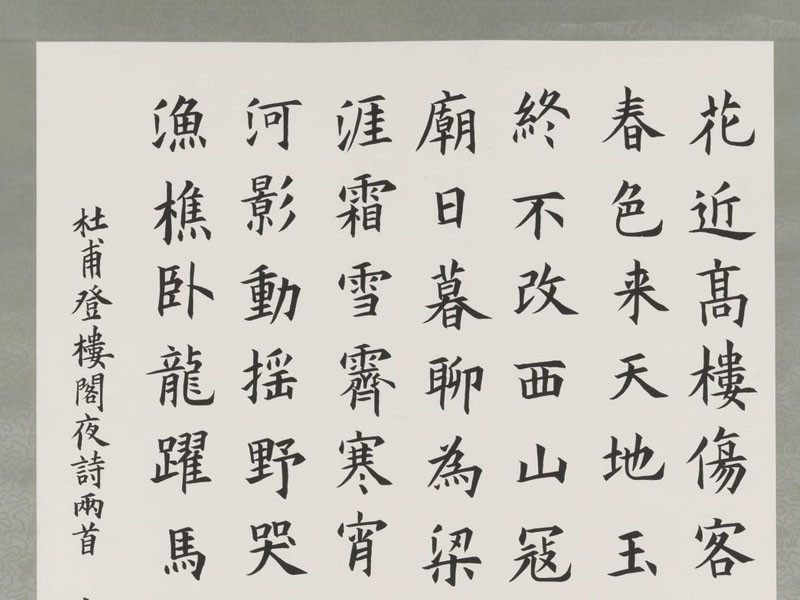 花近高樓傷客
春色来天地玉
終不改西山冦
廟日暮聊為梁
涯霜雪霽寒宵
河影動揺野哭
漁樵卧龍躍馬
杜甫登樓閣夜詩兩首